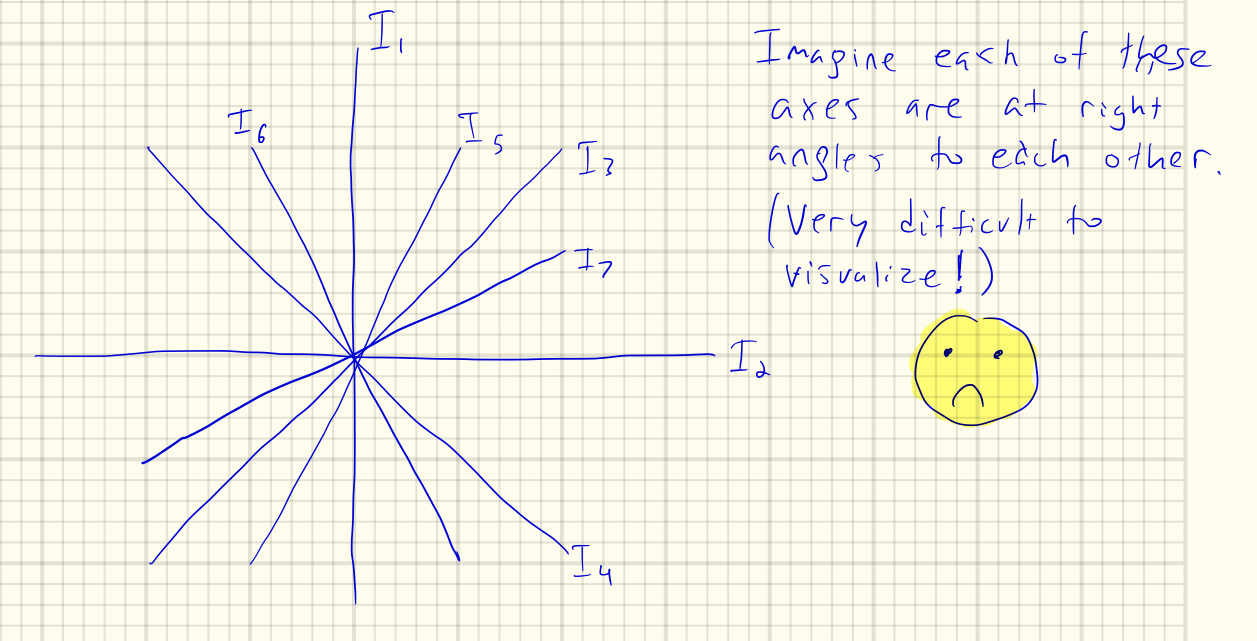 I₁
I₆
I₅
I₃
I₇
I₂
I₄
Imagine each of these
axes are at right
angles to each other.
(Very difficult to
visualize!)